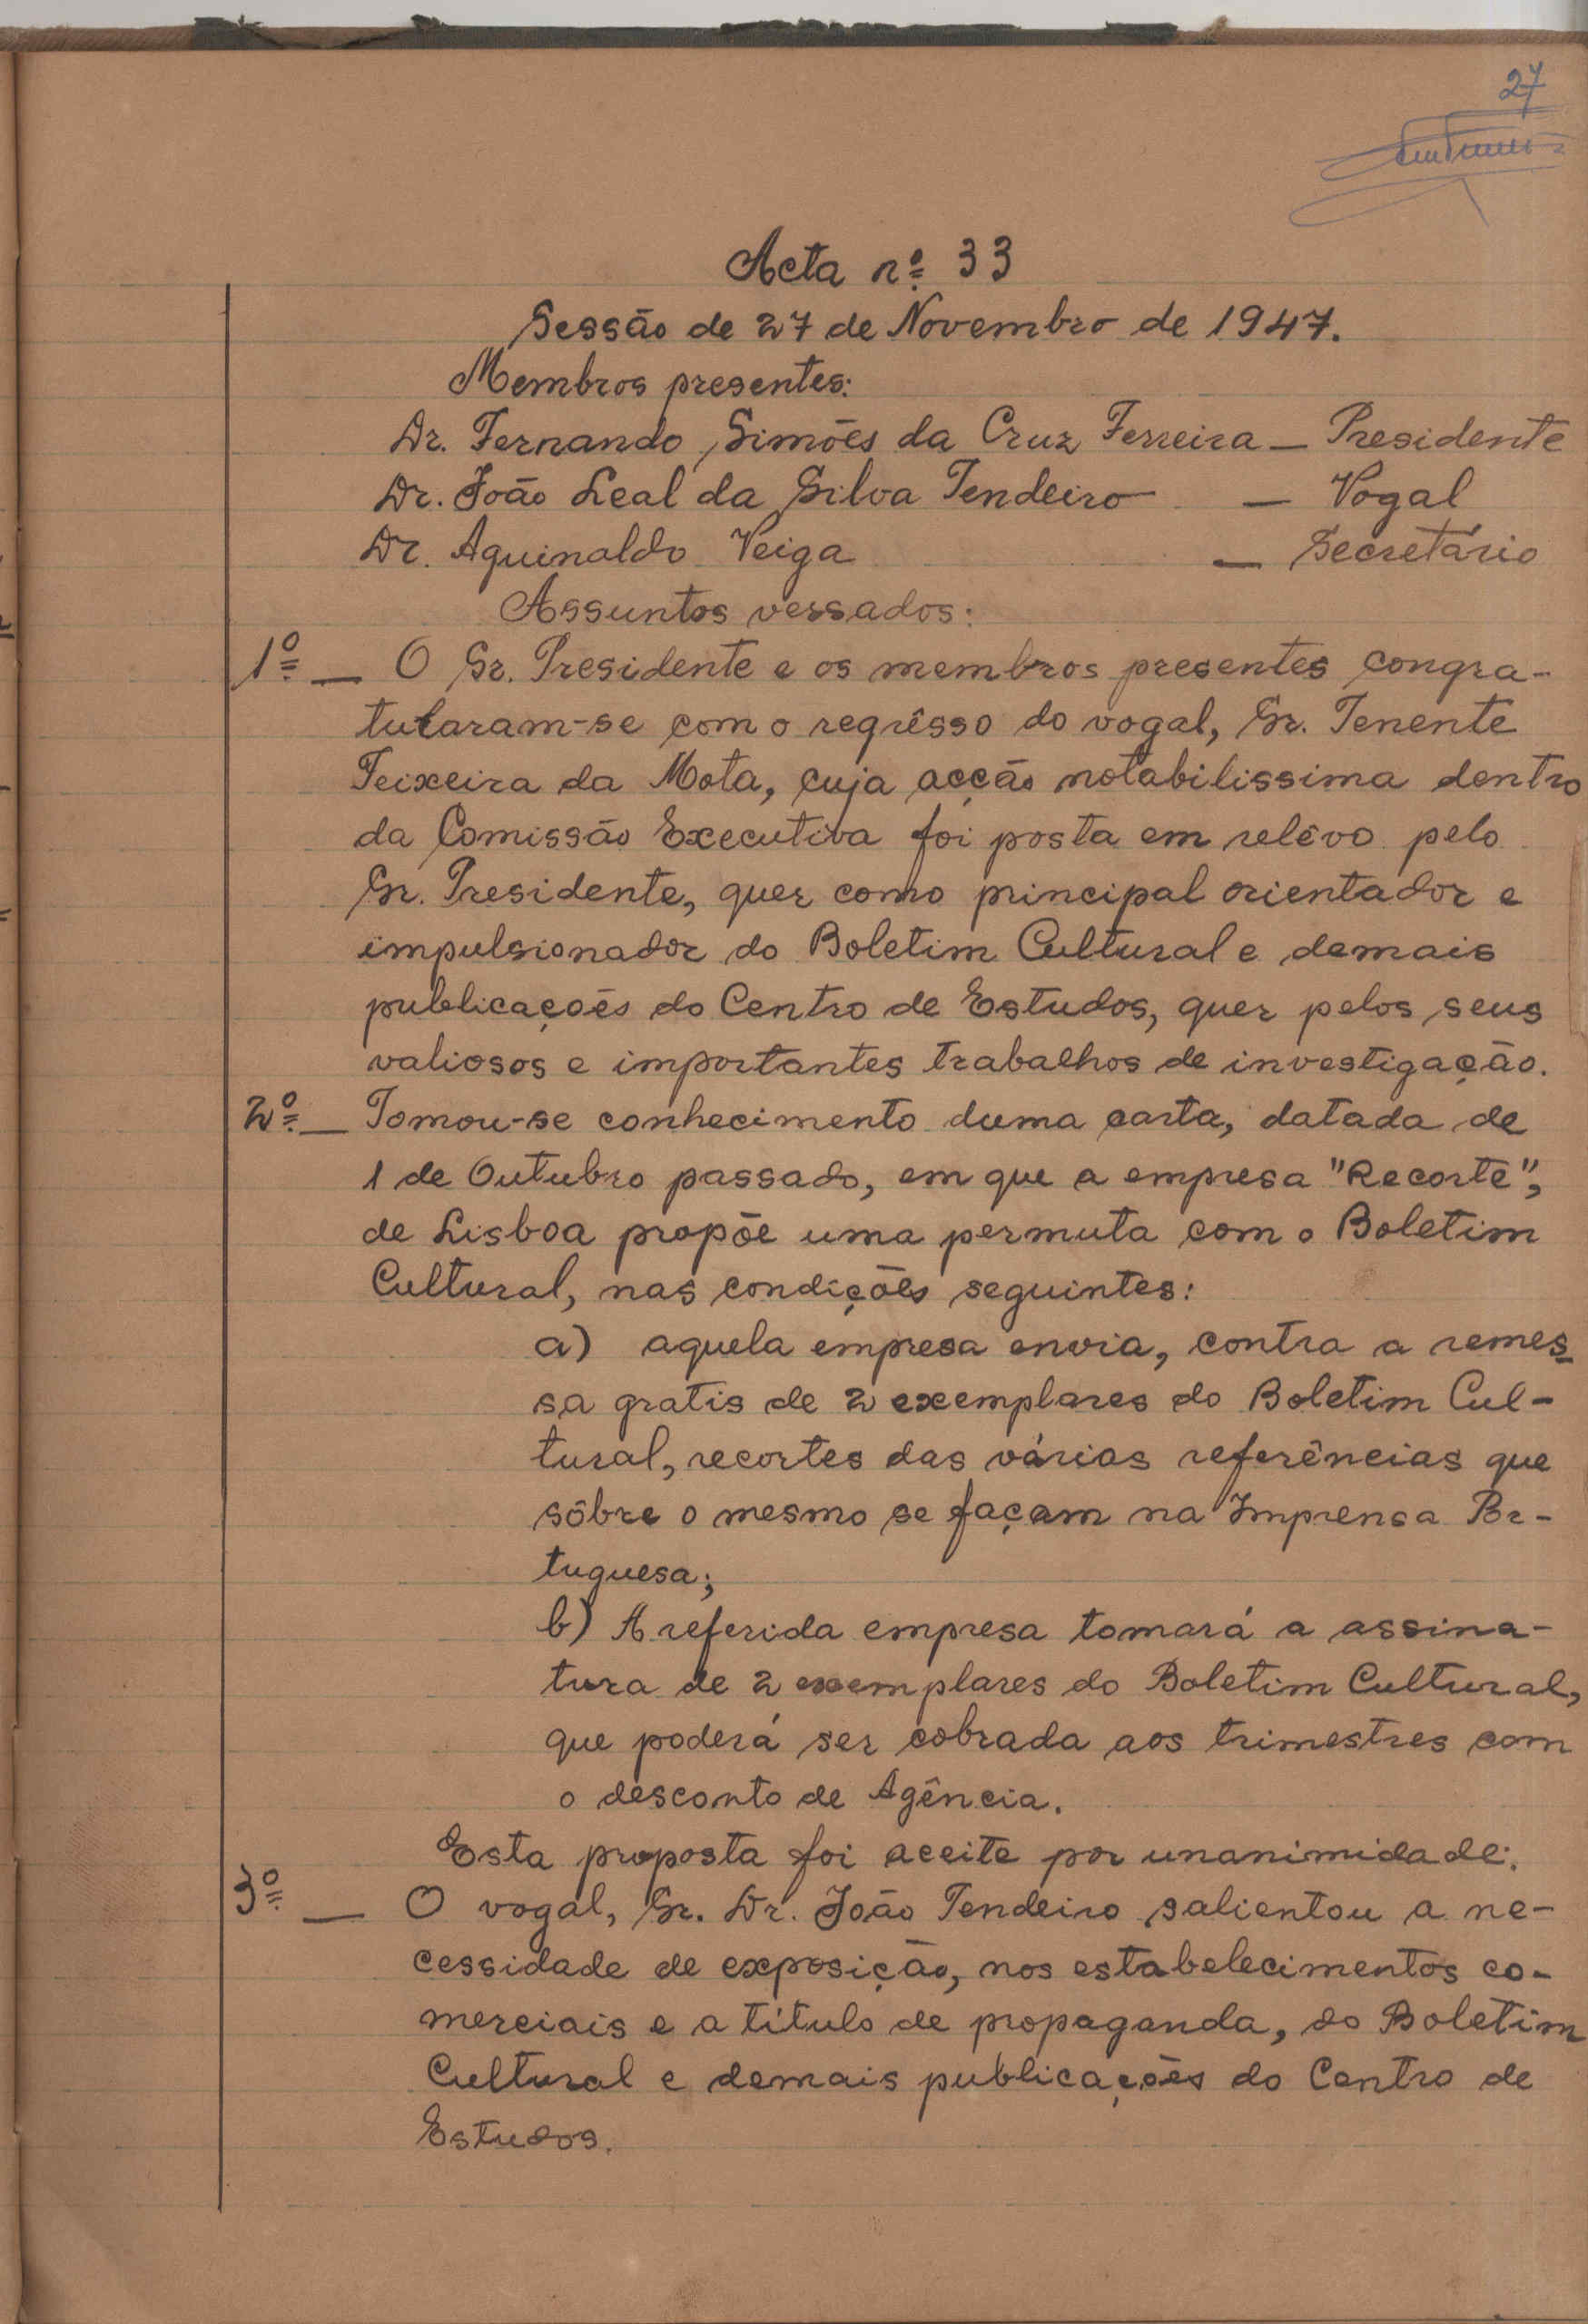 27
Acta nº 33
Sessão de 27 de Novembro de 1947.
Membros presentes:
Dr. Fernando Simões da Cruz Ferreira — Presidente
Dr. João Leal da Silva Tendeiro — Vogal
Dr. Aguinaldo Veiga — Secretário
Assuntos versados:
1º — O Sr. Presidente e os membros presentes congra-
tularam-se com o regrêsso do vogal, Sr. Tenente
Teixeira da Mota, cuja acção notabilissima dentro
da Comissão Executiva foi posta em relêvo pelo
Sr. Presidente, quer como principal orientador e
impulsionador do Boletim Cultural e demais
publicações do Centro de Estudos, quer pelos seus
valiosos e importantes trabalhos de investigação.
2º — Tomou-se conhecimento duma carta, datada de
1 de Outubro passado, em que a empresa "Recorte",
de Lisboa propõe uma permuta com o Boletim
Cultural, nas condições seguintes:
a) aquela empresa envia, contra a remes-
sa gratis de 2 exemplares do Boletim Cul-
tural, recortes das várias referências que
sôbre o mesmo se façam na Imprensa Por-
tuguesa;
b) A referida empresa tomará a assina-
tura de 2 exemplares do Boletim Cultural,
que poderá ser cobrada aos trimestres com
o desconto de Agência.
Esta proposta foi aceite por unanimidade.
3º — O vogal, Sr. Dr. João Tendeiro salientou a ne-
cessidade de exposição, nos estabelecimentos co-
merciais e a título de propaganda, do Boletim
Cultural e demais publicações do Centro de
Estudos.